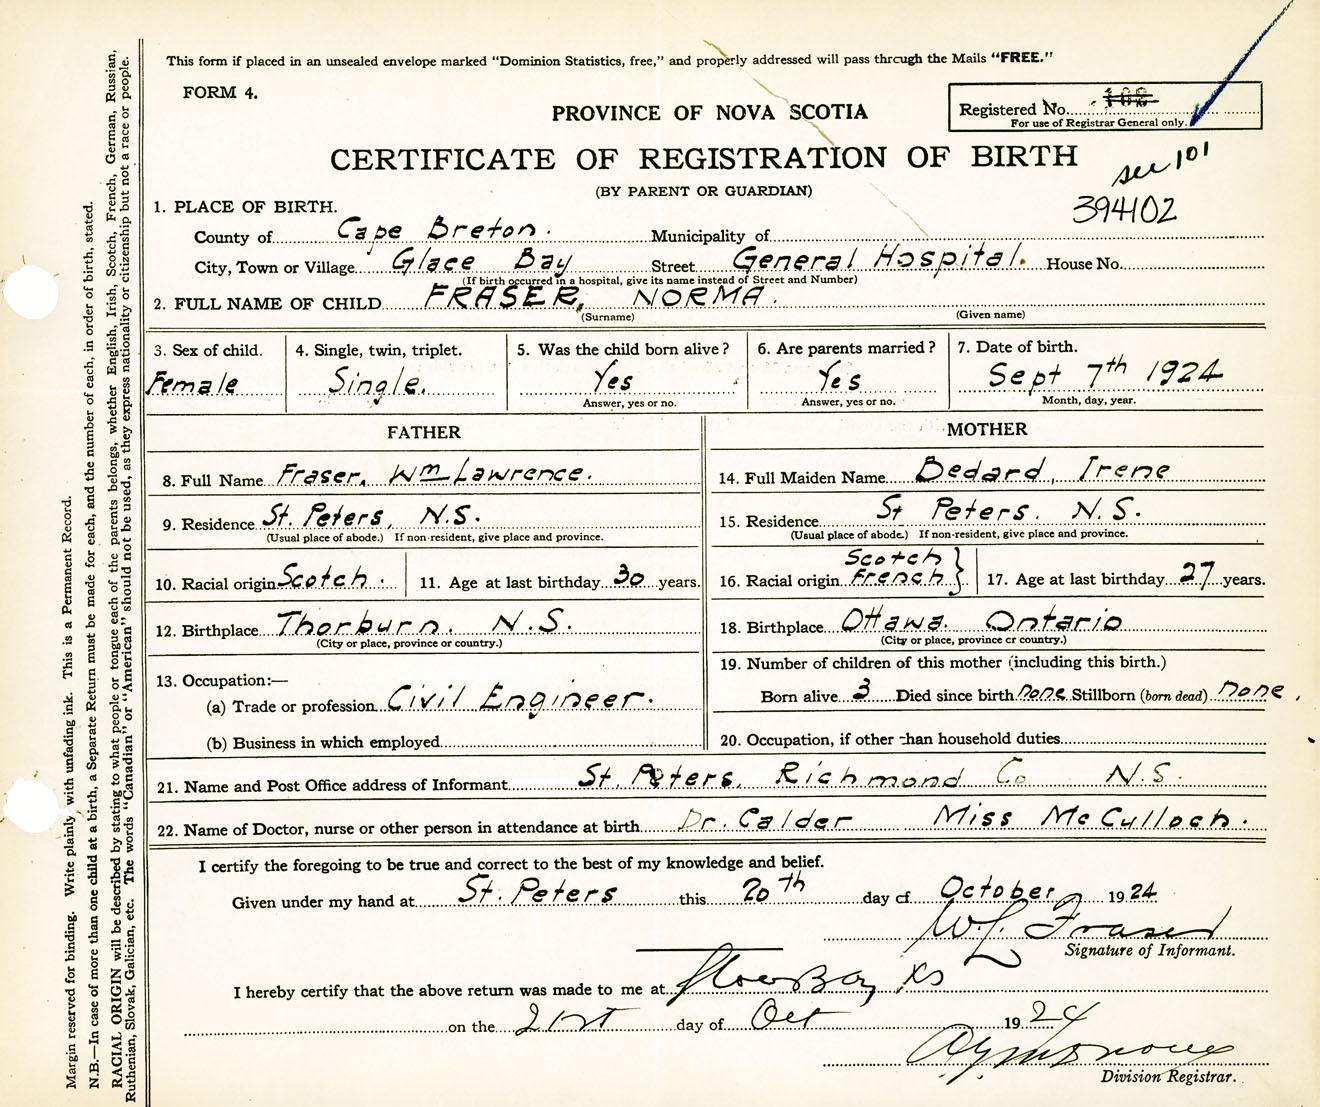 This form if placed in an unsealed envelope marked "Dominion Statistics, free," and properly addressed will pass through the Mails "FREE."
FORM 4.
PROVINCE OF NOVA SCOTIA
Registered No. 100
For use of Registrar General only.
CERTIFICATE OF REGISTRATION OF BIRTH
see 101
(BY PARENT OR GUARDIAN)
394102
1. PLACE OF BIRTH.
County of Cape Breton. Municipality of
City, Town or Village Glace Bay Street General Hospital. House No.
(If birth occurred in a hospital, give its name instead of Street and Number)
2. FULL NAME OF CHILD FRASER, NORMA.
(Surname) (Given name)
3. Sex of child. 4. Single, twin, triplet. 5. Was the child born alive? 6. Are parents married? 7. Date of birth.
Female Single. Yes Yes Sept 7th 1924
Answer, yes or no. Answer, yes or no. Month, day, year.
FATHER MOTHER
8. Full Name Fraser, Wm Lawrence. 14. Full Maiden Name Bedard, Irene
9. Residence St. Peters, N.S. 15. Residence St Peters. N.S.
(Usual place of abode.) If non-resident, give place and province. (Usual place of abode.) If non-resident, give place and province.
10. Racial origin Scotch. 11. Age at last birthday 30 years. 16. Racial origin Scotch French } 17. Age at last birthday 27 years.
12. Birthplace Thorburn. N.S. 18. Birthplace Ottawa. Ontario
(City or place, province or country.) (City or place, province or country.)
13. Occupation:— 19. Number of children of this mother (including this birth.)
(a) Trade or profession Civil Engineer. Born alive 3 Died since birth none Stillborn (born dead) none.
(b) Business in which employed 20. Occupation, if other than household duties
21. Name and Post Office address of Informant St. Peters, Richmond Co N.S.
22. Name of Doctor, nurse or other person in attendance at birth Dr. Calder Miss McCulloch.
I certify the foregoing to be true and correct to the best of my knowledge and belief.
Given under my hand at St. Peters this 20th day of October 1924
W. L. Fraser
Signature of Informant.
I hereby certify that the above return was made to me at Glace Bay NS
on the 21st day of Oct 1924
Division Registrar.
Margin reserved for binding. Write plainly with unfading ink. This is a Permanent Record.
N.B.—In case of more than one child at a birth, a Separate Return must be made for each, and the number of each, in order of birth, stated.
RACIAL ORIGIN will be described by stating to what people or tongue each of the parents belongs, whether English, Irish, Scotch, French, German, Russian,
Ruthenian, Slovak, Galician, etc. The words "Canadian" or "American" should not be used, as they express nationality or citizenship but not a race or people.